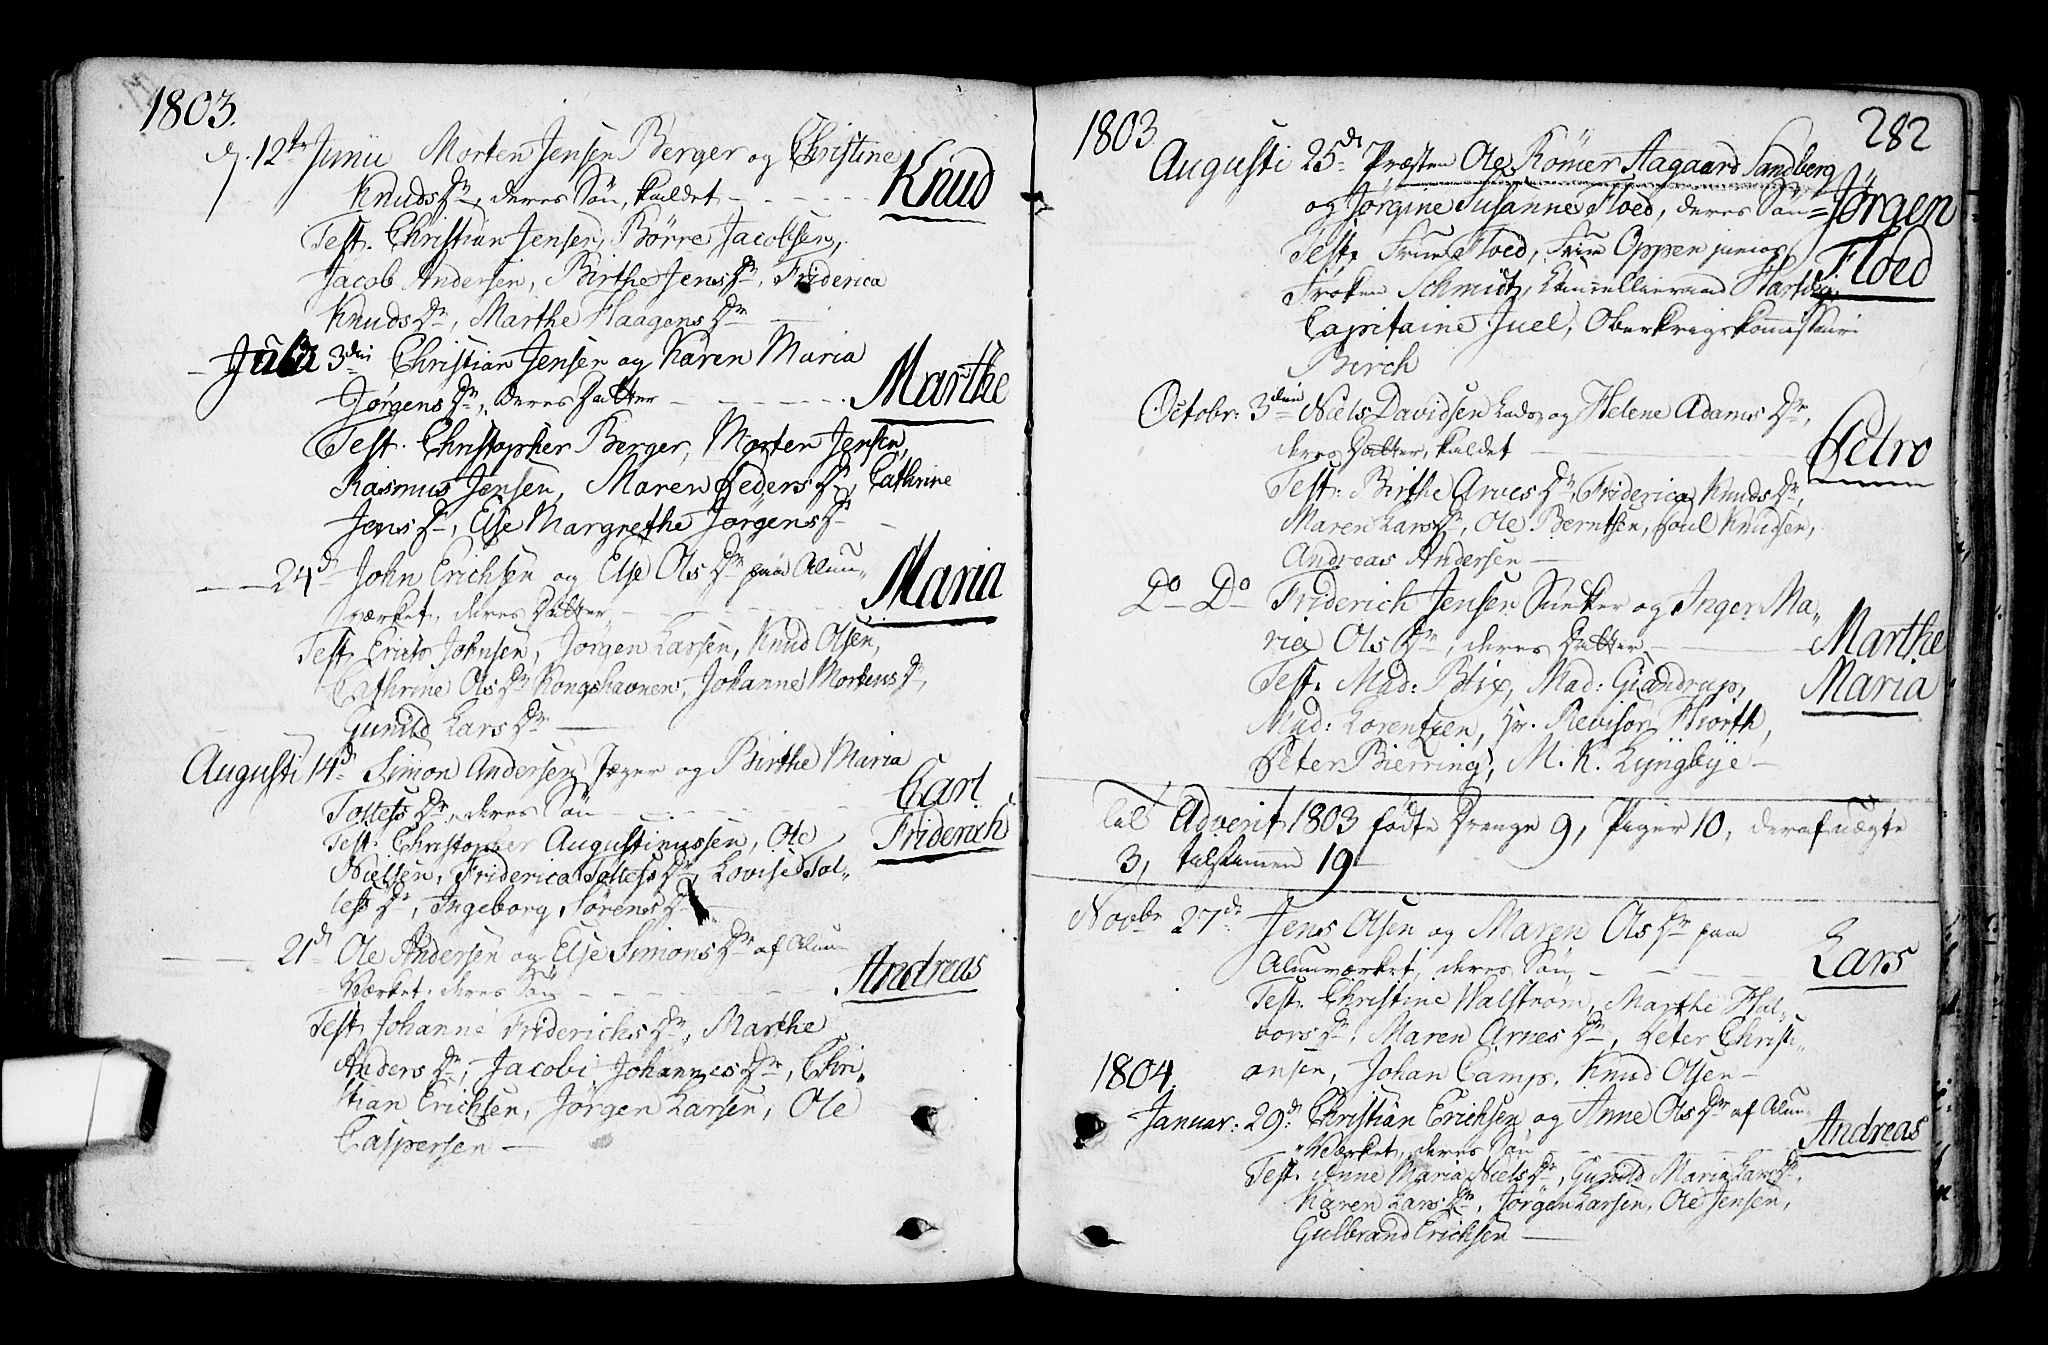 1803.
d. 12te Junii Morten Jensen Berger og Christine
Knuds Dr, deres Søn, kaldet - - - - Knud
Test. Christian Jensen, Børre Jacobsen,
Jacob Andersen, Birthe Jens Dr, Friderica
Knuds Dr, Marthe Haagens Dr —
Julii 3die Christian Jensen og Karen Maria
Jørgens Dr, deres Datter - - - - Marthe
Test. Christopher Berger, Morten Jensen,
Rasmus Jensen, Maren Peders Dr, Cathrine
Jens Dr, Else Margrethe Jørgens Dr —
— 24d John Erichsen og Else Ols Dr paa Alun-
værket, deres Datter - - - - Maria
Test. Erich Johnsen, Jørgen Larsen, Knud Olsen,
Cathrine Ols Dr Kongshavnen, Johanne Mortens Dr,
Gunild Lars Dr —
Augusti 14d Simon Andersen Jæger og Birthe Maria
Tollefs Dr, deres Søn - - - - Carl
Friderich
Test. Christopher Augustinussen, Ole
Nielsen, Friderica Tollefs Dr, Lovise Tol-
lefs Dr, Ingeborg Sørens Dr —
— 21d Ole Andersen og Else Simons Dr af Alun-
Værket, deres Søn - - - - Andreas
Test. Johanne Friderichs Dr, Marthe
Anders Dr, Jacobi Johannes Dr, Chri-
stian Erichsen, Jørgen Larsen, Ole
Caspersen —
1803 282
Augusti 25d Præsten Ole Römer Aagaard Sandberg
og Jørgine Susanne Floed, deres Søn = Jørgen
Floed
Test. Frue Floed, Frue Oppen junior,
Frøken Schmidt, Cancellieraad Hartvig,
Capitaine Juel, Oberkrigskommissair
Birch
Octobr: 3die Niels Davidsen Lads og Helene Adams Dr,
deres Datter, kaldet — Petro
Test: Birthe Arnes Dr, Friderica Knuds Dr,
Maren Lars Dr, Ole Berntsen, Poul Knudsen,
Andreas Andersen —
Do Do Friderich Jensen Snedker og Inger Ma-
ria Ols Dr, deres Datter — Marthe
Maria
Test. Mad: Blix, Mad: Giandrup,
Mad: Lorentzen, Hr. Revisor Hiorth,
Peter Bierring, M. K. Lyngbye —
Til Advent 1803 fødte Drenge 9, Piger 10, deraf uægte
3, tilsammen 19 —
Novbr 27de Jens Olsen og Maren Ols Dr paa
Alunværket, deres Søn, - - - Lars
Test. Christine Walstrøm, Marthe Hal-
vors Dr, Maren Arnes Dr, Peter Christi-
ansen, Johan Camp, Knud Olsen —
1804.
Januar: 29d Christian Erichsen og Anne Ols Dr af Alun-
Værket, deres Søn - - - Andreas
Test. Anne Maria Niels Dr, Gunild Maria Lars Dr,
Karen Lars Dr, Jørgen Larsen, Ole Jensen,
Gulbrand Erichsen —